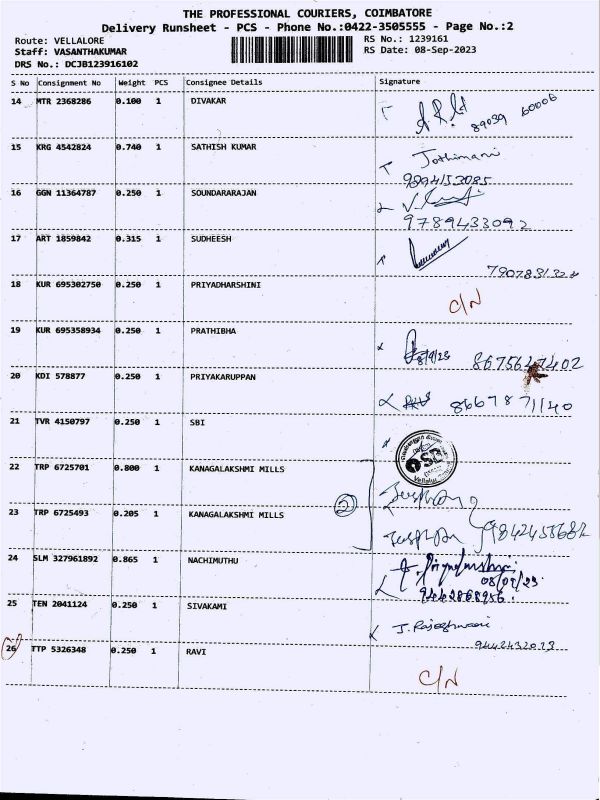 THE PROFESSIONAL COURIERS, COIMBATORE
Delivery Runsheet - PCS - Phone No.:0422-3505555 - Page No.:2
Route: VELLALORE RS No.: 1239161
Staff: VASANTHAKUMAR RS Date: 08-Sep-2023
DRS No.: DCJB123916102
S No Consignment No Weight PCS Consignee Details Signature
14 MTR 2368286 0.100 1 DIVAKAR 89039 60006
15 KRG 4542824 0.740 1 SATHISH KUMAR Jothimani
9894153085
16 GGN 11364787 0.250 1 SOUNDARARAJAN
9789433092
17 ART 1859842 0.315 1 SUDHEESH
18 KUR 695302750 0.250 1 PRIYADHARSHINI C/N
19 KUR 695358934 0.250 1 PRATHIBHA 8/9/23
20 KDI 578877 0.250 1 PRIYAKARUPPAN 8667871140
21 TVR 4150797 0.250 1 SBI
22 TRP 6725701 0.800 1 KANAGALAKSHMI MILLS
23 TRP 6725493 0.205 1 KANAGALAKSHMI MILLS 2
24 SLM 327961892 0.865 1 NACHIMUTHU
08/09/23
9442868956.
25 TEN 2041124 0.250 1 SIVAKAMI J. Rajeshwari
26 TTP 5326348 0.250 1 RAVI C/N